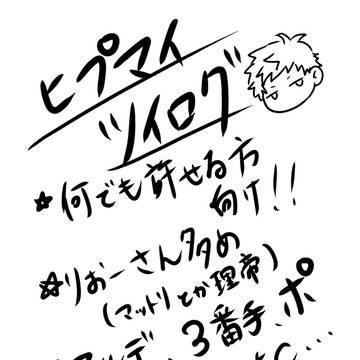 ヒプマイ
ツイログ
☆何でも許せる方
向け!!
☆りおーさん多め
(マッドリとか理帝)
3番手、ポ